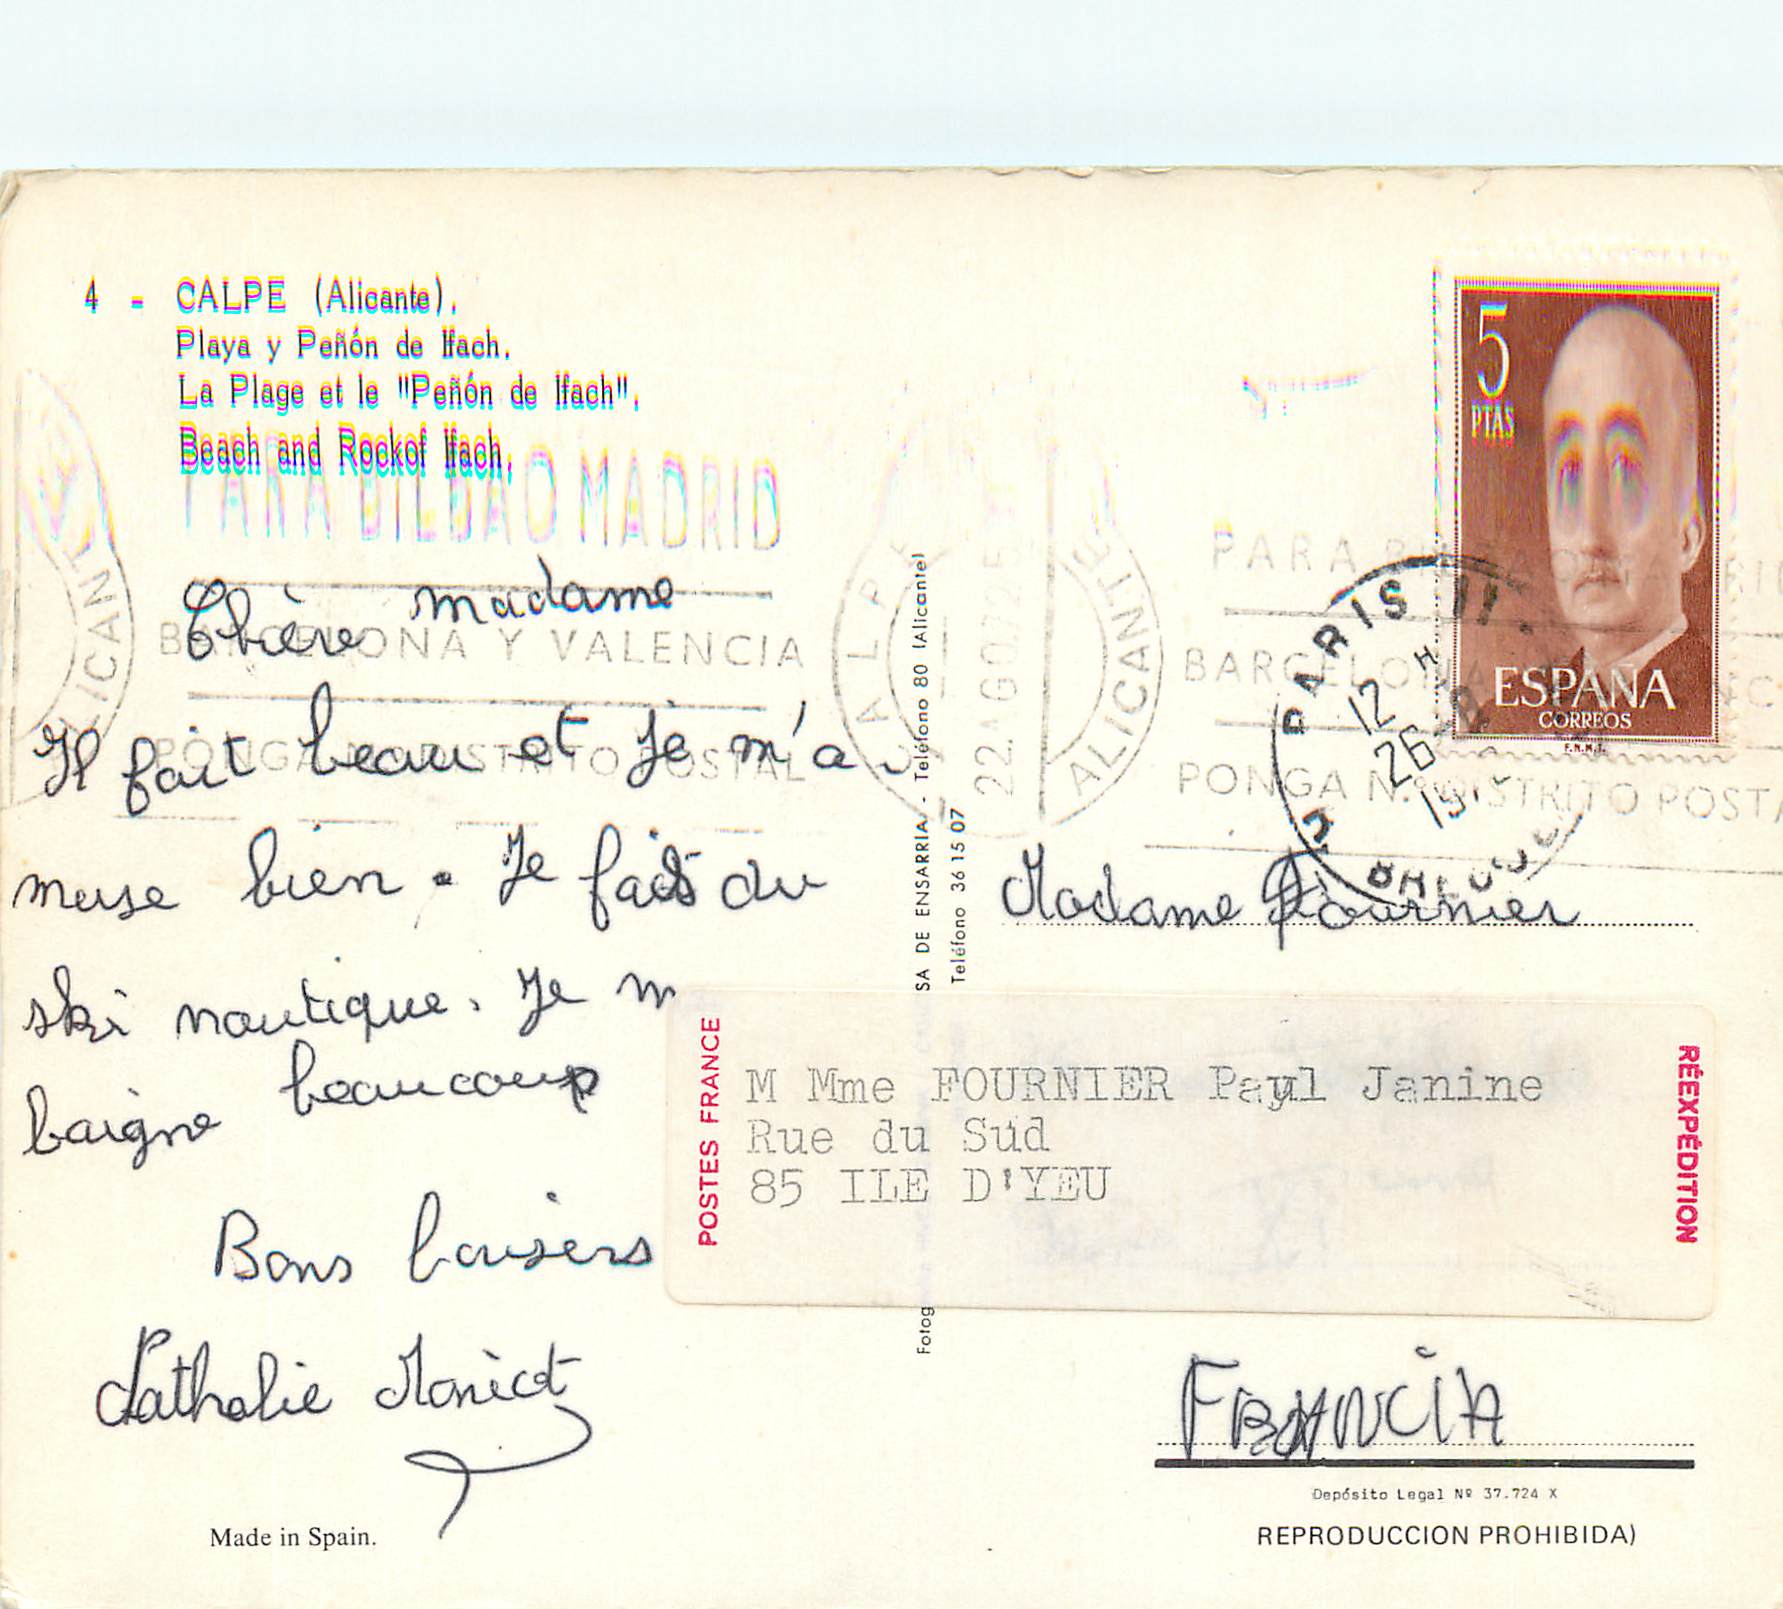 4 - CALPE (Alicante).
Playa y Peñón de Ifach.
La Plage et le "Peñón de Ifach".
Beach and Rockof Ifach.
PARA BILBAO MADRID
BARCELONA Y VALENCIA
PONGA N.º DISTRITO POSTAL
ALICANTE
CALPE
22 AGO 72
ALICANTE
PARA BILBAO MADRID
BARCELONA
PONGA N.º DISTRITO POSTAL
5
PTAS
ESPAÑA
CORREOS
F.N.M.T.
PARIS 11
12 H
26 - 8
19
Chère madame
Il fait beau et Je m'a
muse bien. Je fais du
ski nautique. Je m
baigne beaucoup
Bons baisers
Nathalie
Made in Spain.
SA DE ENSARRIA - Teléfono 80 (Alicante)
Teléfono 36 15 07
Fotog
Madame Fournier
POSTES FRANCE
M Mme FOURNIER Paul Janine
Rue du Sud
85 ILE D'YEU
RÉEXPÉDITION
FRANCIA
Depósito Legal Nº 37.724 X
REPRODUCCION PROHIBIDA)